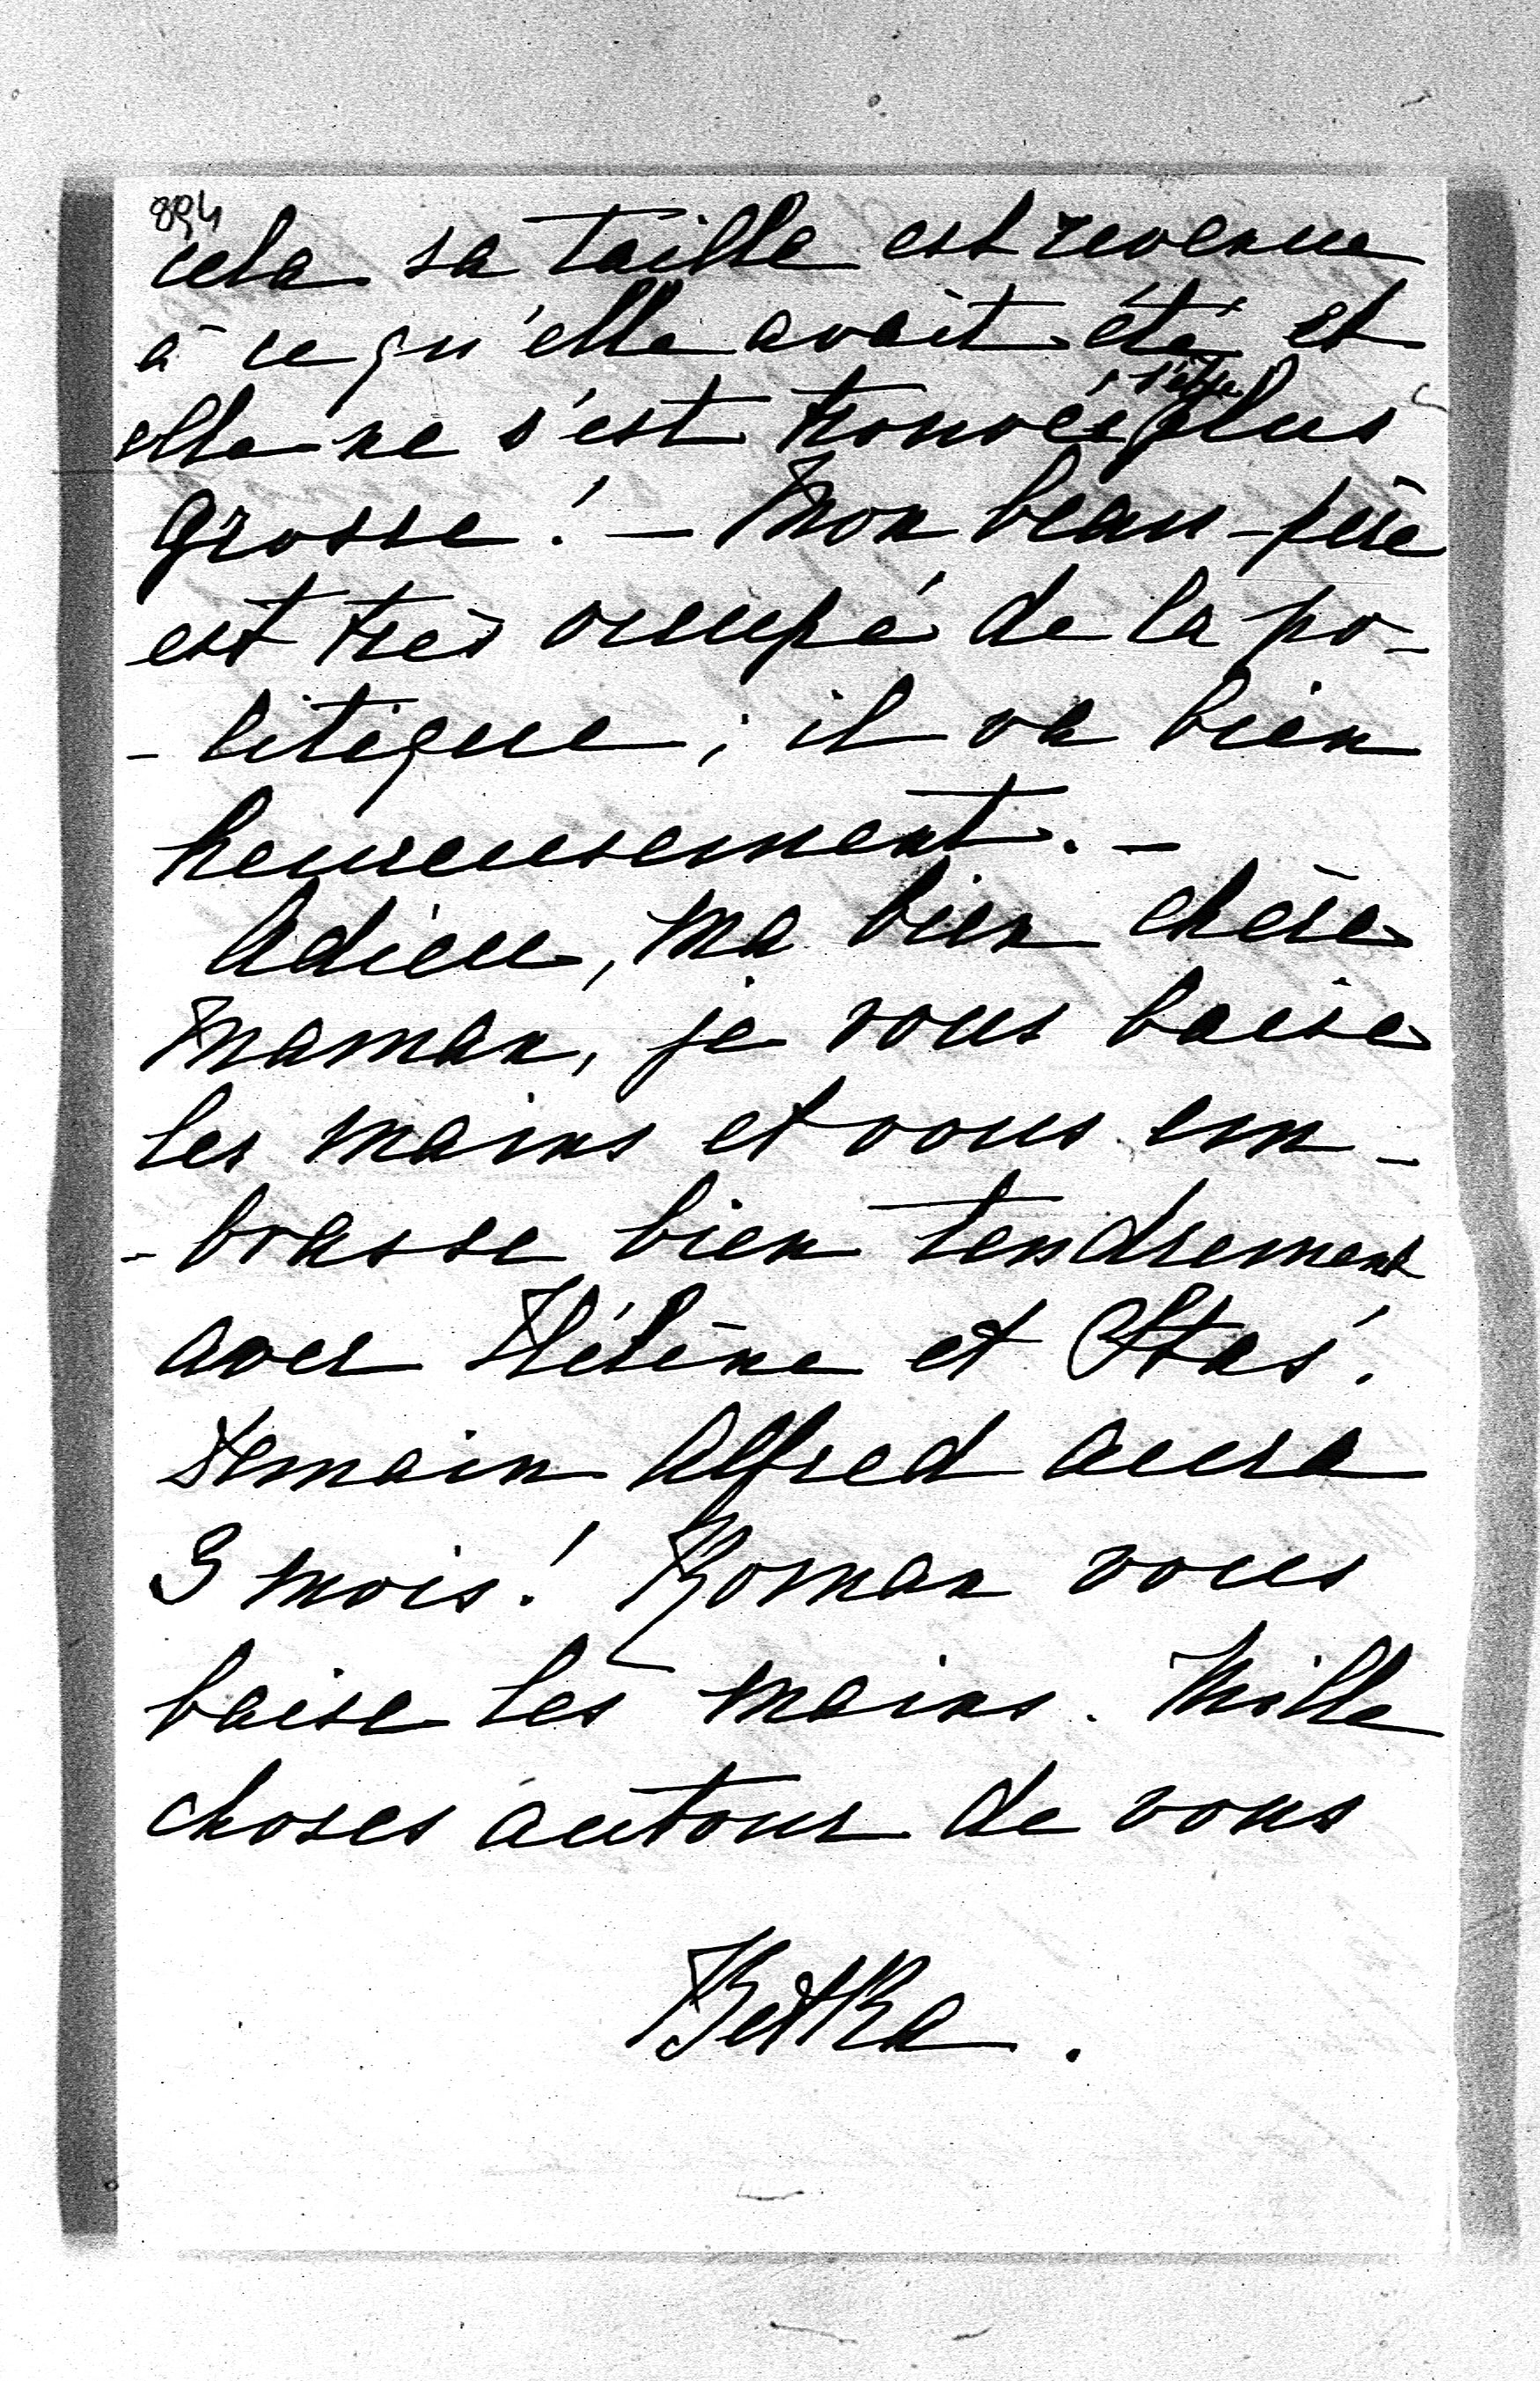 894
cela sa taille est revenue
à ce qu'elle avait été et
elle ne s'est trouvée plus
grosse! — Mon beau-père
est très occupé de la po-
- litique ; il va bien
heureusement. —
Adieu, ma bien chère
Maman, je vous baise
les mains et vous em-
- brasse bien tendrement
avec Hélène et Staś.
Demain Alfred aura
3 mois! Roman vous
baise les mains. Mille
choses autour de vous
Betka.